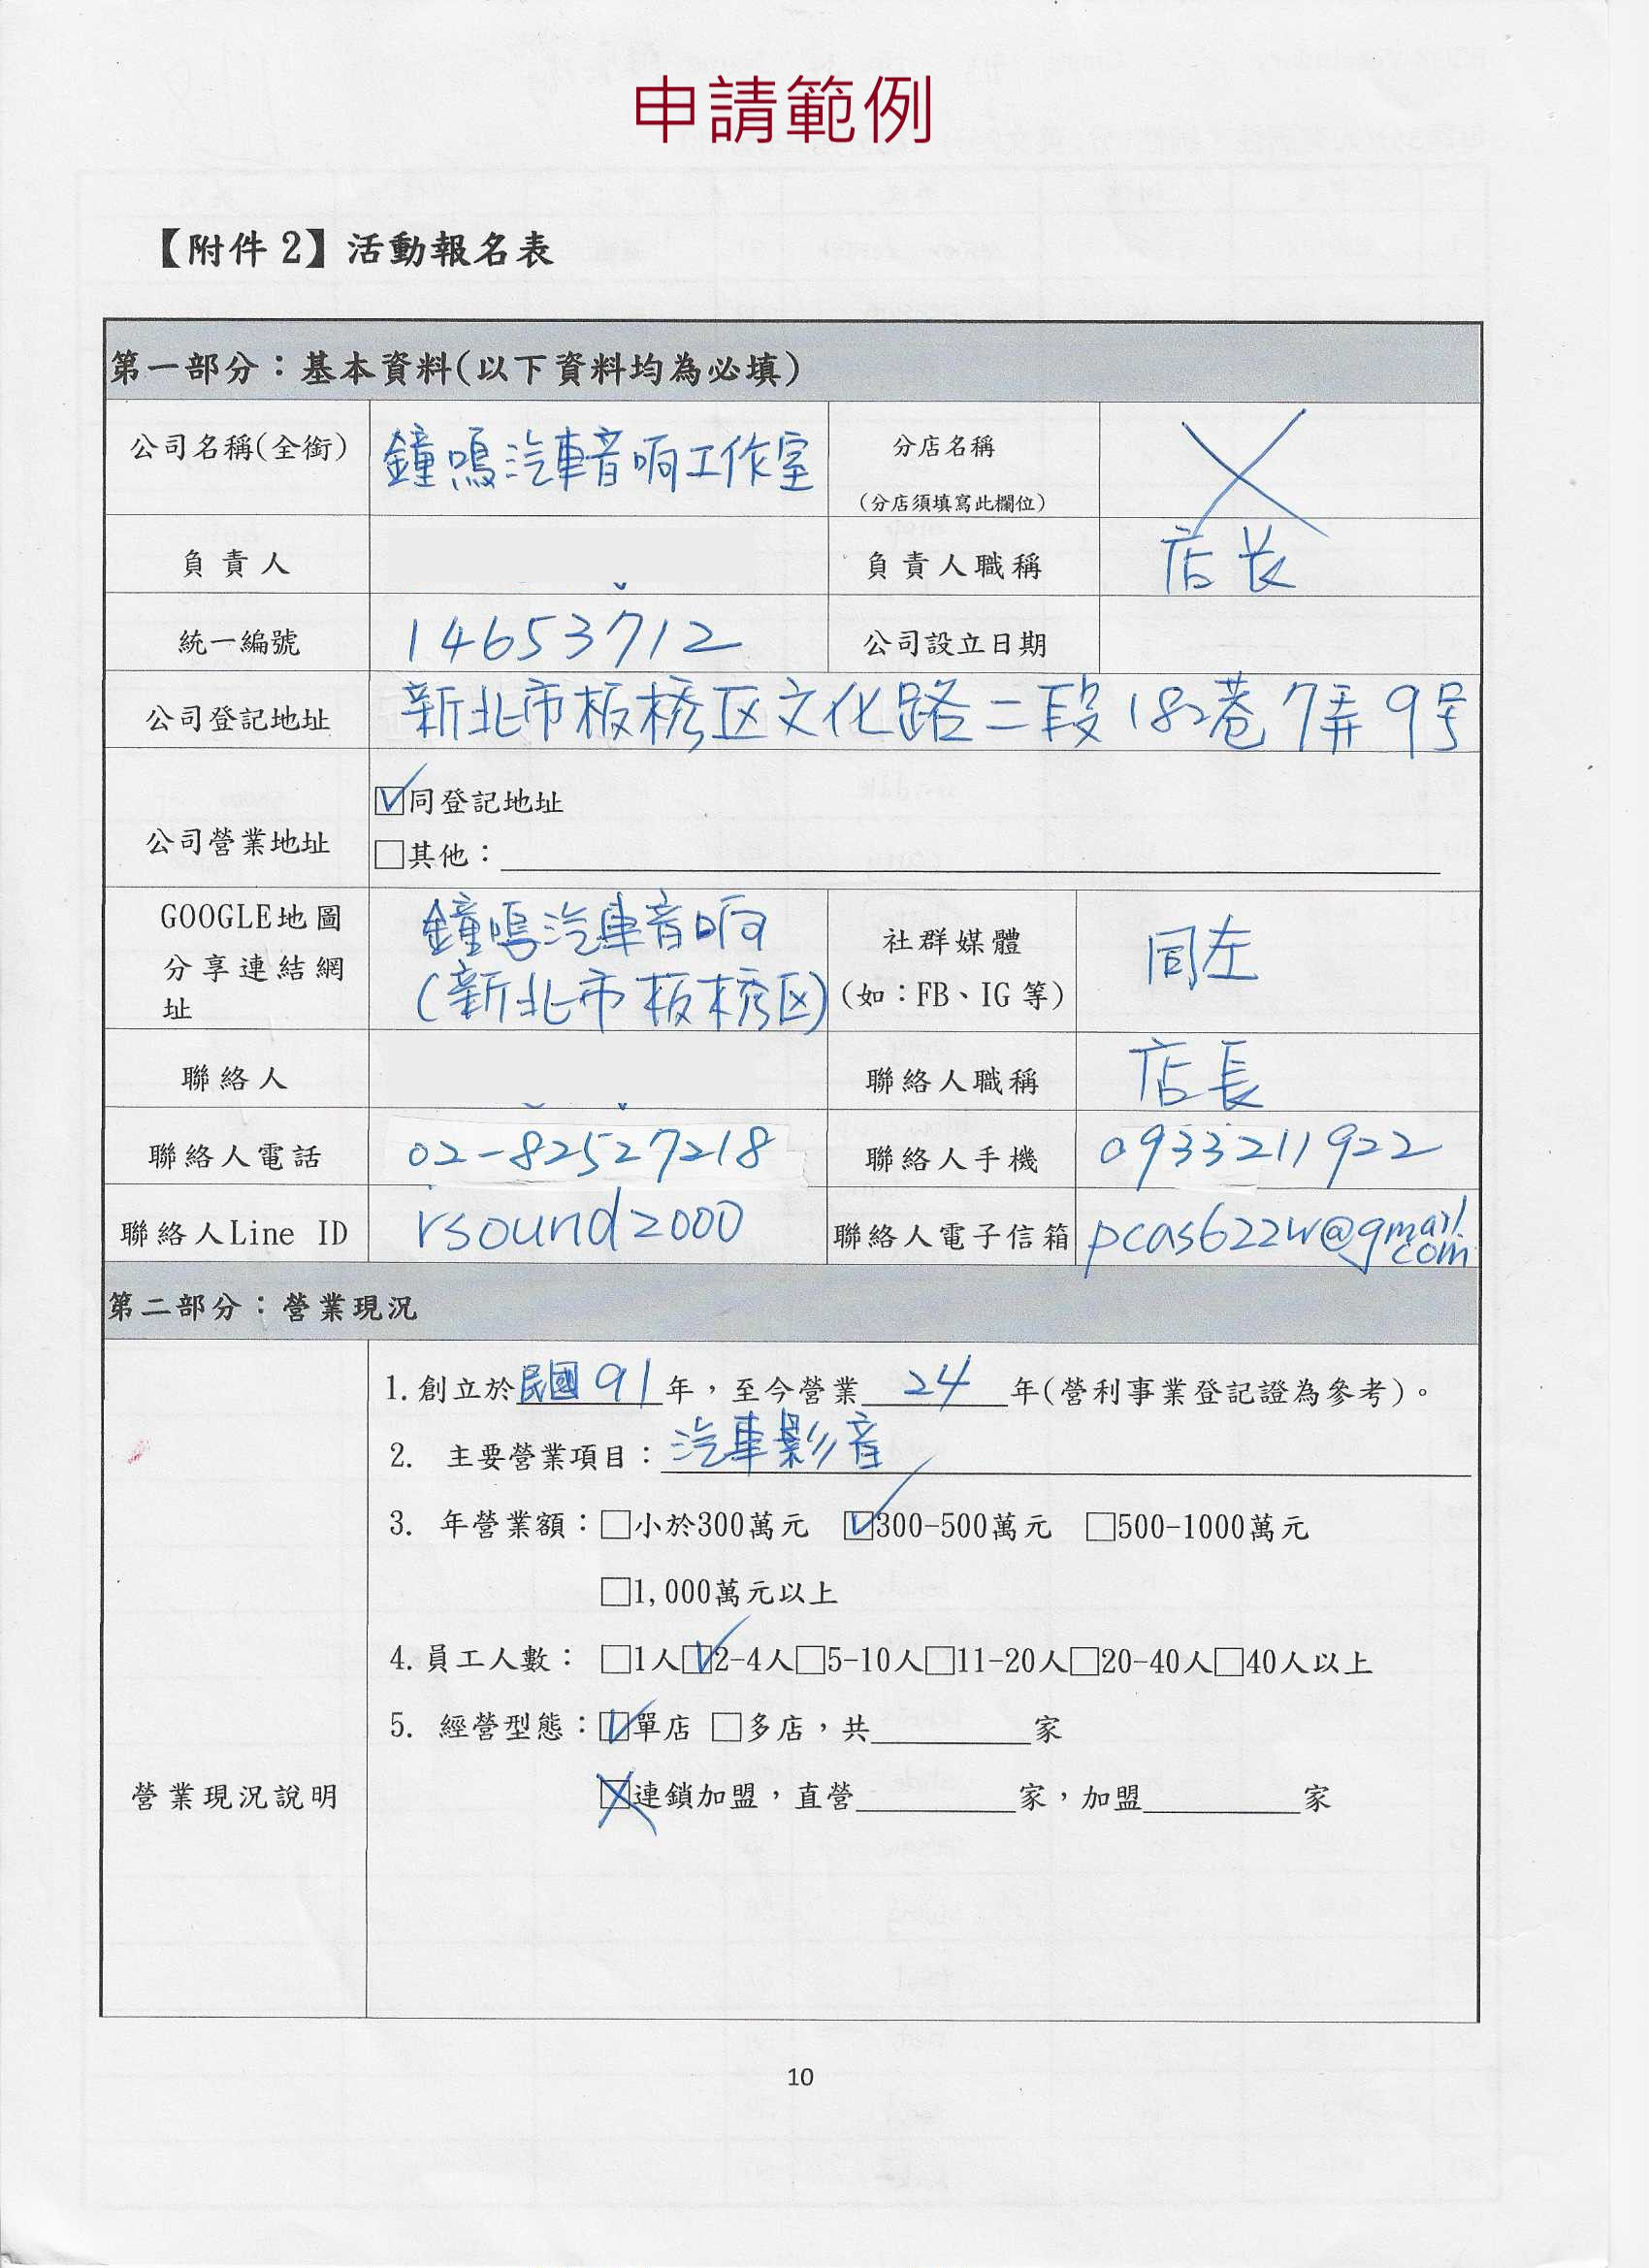 申請範例
【附件 2】活動報名表
第一部分：基本資料(以下資料均為必填)
公司名稱(全銜) 鐘鳴汽車音响工作室 分店名稱
(分店須填寫此欄位)
負責人 負責人職稱 店长
統一編號 14653712 公司設立日期
公司登記地址 新北市板橋区文化路二段182巷7弄9号
公司營業地址
☑同登記地址
□其他：
GOOGLE地圖
分享連結網
址
鐘鳴汽車音响
(新北市板橋区)
社群媒體
(如：FB、IG 等)
同左
聯絡人 聯絡人職稱 店長
聯絡人電話 02-82527218 聯絡人手機 0933211922
聯絡人Line ID rsound2000 聯絡人電子信箱 pcas622w@gmail.
com
第二部分：營業現況
營業現況說明
1.創立於民國91年，至今營業24年(營利事業登記證為參考)。
2. 主要營業項目：汽車影音
3. 年營業額：□小於300萬元 ☑300-500萬元 □500-1000萬元
□1,000萬元以上
4.員工人數： □1人☑2-4人□5-10人□11-20人□20-40人□40人以上
5. 經營型態：☑單店 □多店，共 家
☒連鎖加盟，直營 家，加盟 家
10